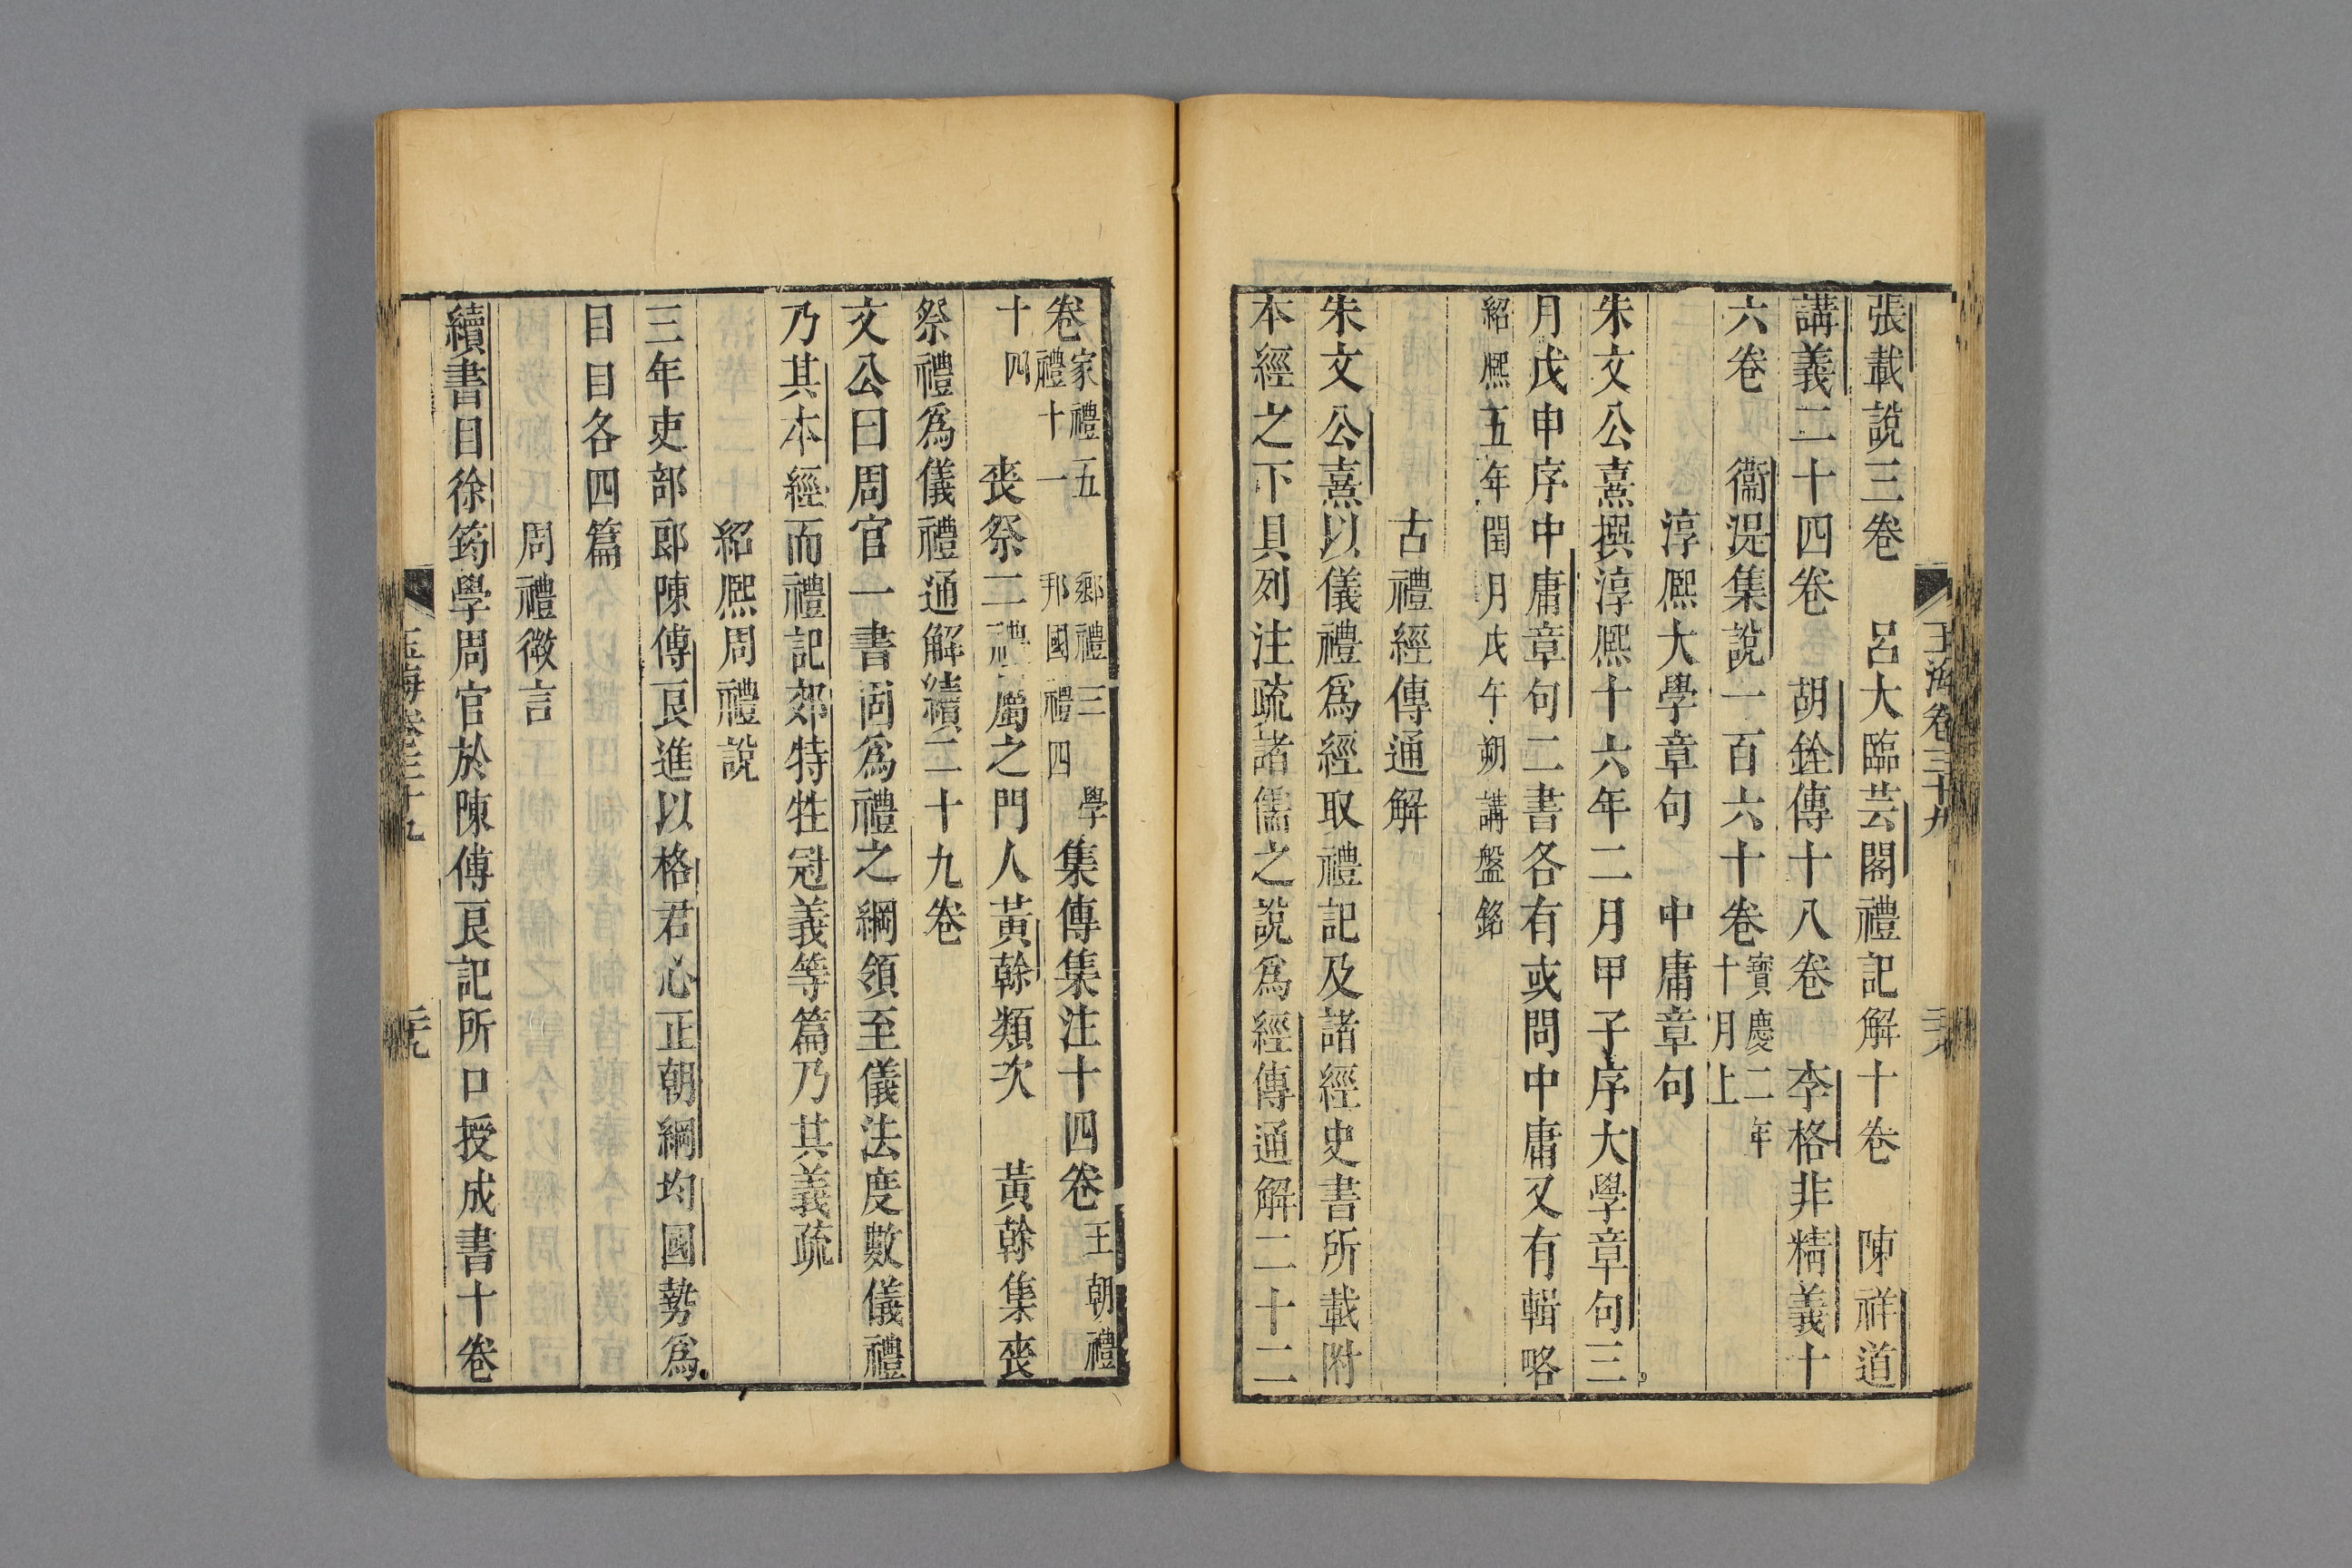 玉海卷三十九
張載說三卷　呂大臨芸閣禮記解十卷　陳祥道
講義二十四卷　胡銓傳十八卷　李格非精義十
六卷　衞湜集說一百六十卷寶慶二年十月上
淳熈大學章句　中庸章句
朱文公熹撰淳熈十六年二月甲子序大學章句三
月戊申序中庸章句二書各有或問中庸又有輯略
紹熈五年閏月戊午朔講盤銘
古禮經傳通解
朱文公熹以儀禮爲經取禮記及諸經史書所載附
本經之下具列注疏諸儒之說爲經傳通解二十二
卷家禮五鄉禮三學禮十一邦國禮四集傳集注十四卷王朝禮
十四　喪祭二禮屬之門人黃榦類次　黃榦集喪
祭禮爲儀禮通解續二十九卷
文公曰周官一書固爲禮之綱領至儀法度數儀禮
乃其本經而禮記郊特牲冠義等篇乃其義疏
紹熈周禮說
三年吏部郎陳傅良進以格君心正朝綱均國勢爲
目目各四篇
周禮微言
續書目徐筠學周官於陳傅良記所口授成書十卷
玉海卷三十九